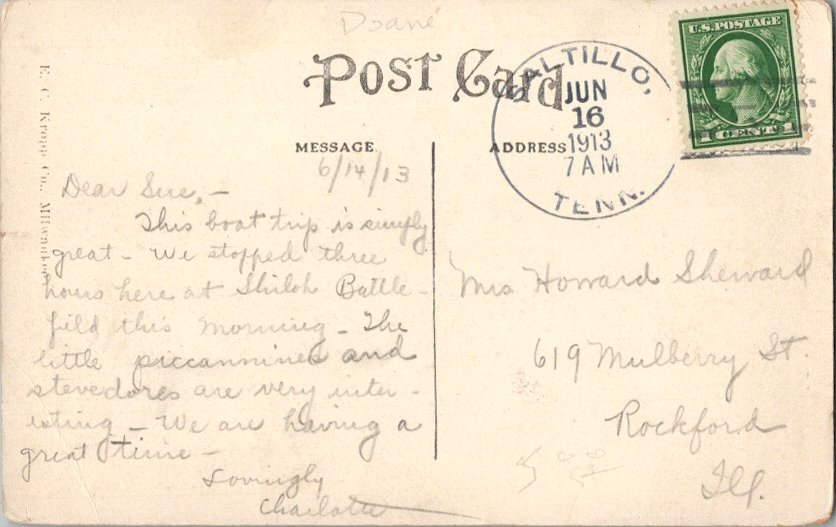 Doane
POST CARD
SALTILLO,
JUN
16
1913
7 AM
TENN.
U.S. POSTAGE
1 CENT 1
MESSAGE
ADDRESS
E. C. Kropp Co., Milwaukee
6/14/13
Dear Sue, -
This boat trip is simply
great - We stopped three
hours here at Shiloh Battle-
field this morning - The
little piccannines and
stevedores are very inter-
esting - We are having a
great time -
Lovingly
Charlotte
Mrs Howard Sheward
619 Mulberry St.
Rockford
Ill.